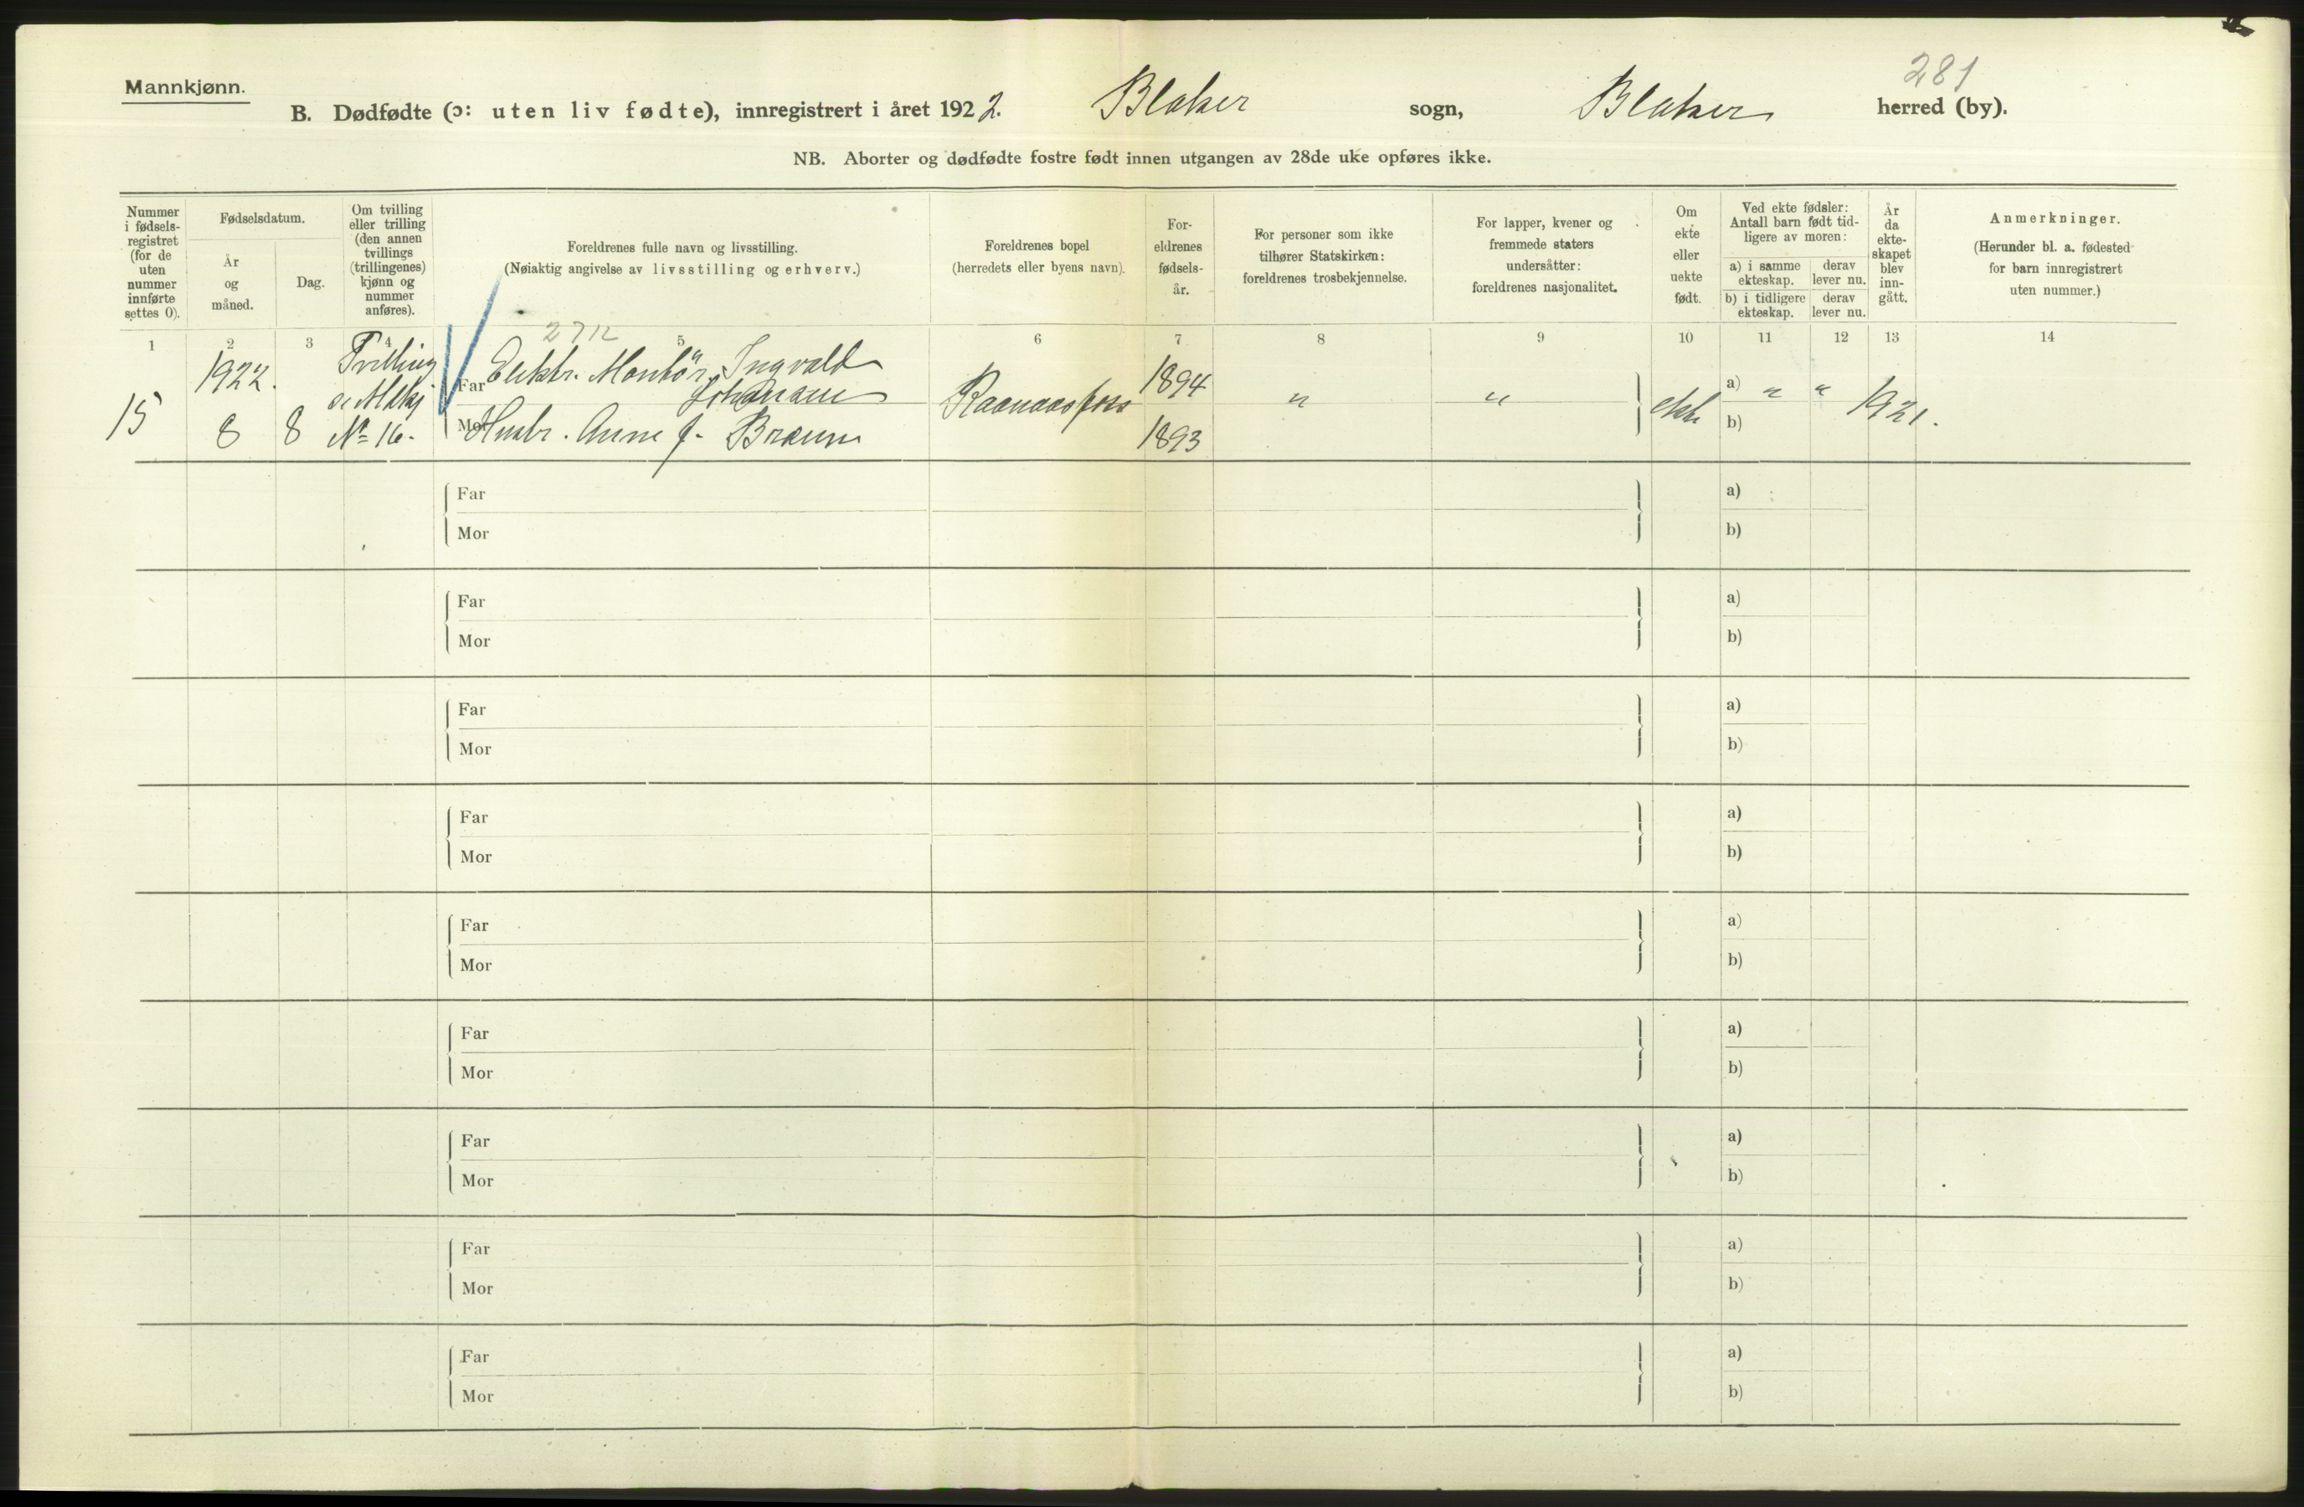 281
Mannkjønn.
B. Dødfødte (ɔ: uten liv fødte), innregistrert i året 1922. Blaker sogn, Blaker herred (by).
NB. Aborter og dødfødte fostre født innen utgangen av 28de uke opføres ikke.
Nummer i fødsels-registret (for de uten nummer innførte settes 0).
Fødselsdatum.
År og måned.
Dag.
Om tvilling eller trilling (den annen tvillings (trillingenes) kjønn og nummer anføres).
Foreldrenes fulle navn og livsstilling.
(Nøiaktig angivelse av livsstilling og erhverv.)
Foreldrenes bopel
(herredets eller byens navn).
For-eldrenes fødsels-år.
For personer som ikke tilhører Statskirken: foreldrenes trosbekjennelse.
For lapper, kvener og fremmede staters undersåtter: foreldrenes nasjonalitet.
Om ekte eller uekte født.
Ved ekte fødsler: Antall barn født tid-ligere av moren:
a) i samme ekteskap.
derav lever nu.
b) i tidligere ekteskap.
derav lever nu.
År da ekte-skapet blev inn-gått.
Anmerkninger.
(Herunder bl. a. fødested for barn innregistrert uten nummer.)
1 2 3 4 5 6 7 8 9 10 11 12 13 14
2712
15 1922. 8 8 Tvilling № 16.
Far Elektr. Montör, Ingvald Johansen
Mor Hustr. Anne f. Braun
Raanaasfoss 1894 1893 " " ekte a) " " b) 1921.
Far a)
Mor b)
Far a)
Mor b)
Far a)
Mor b)
Far a)
Mor b)
Far a)
Mor b)
Far a)
Mor b)
Far a)
Mor b)
Far a)
Mor b)
Far a)
Mor b)